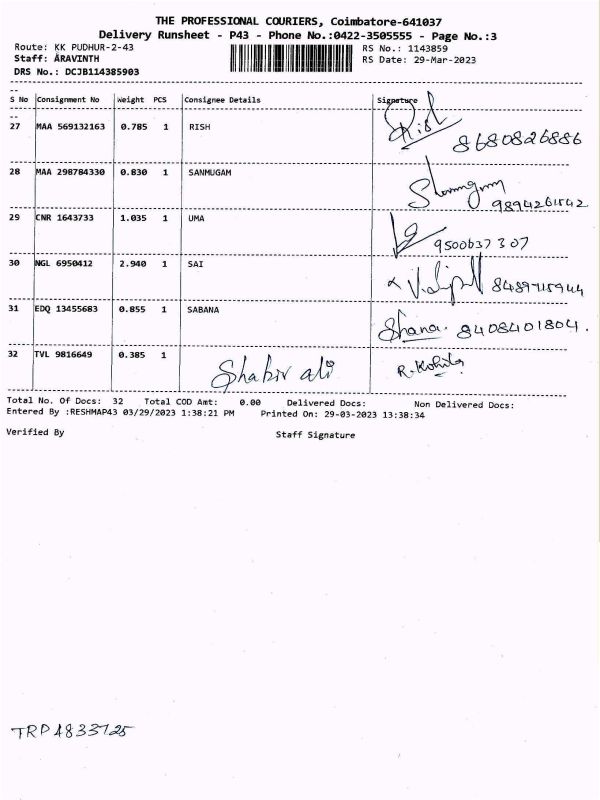 THE PROFESSIONAL COURIERS, Coimbatore-641037
Delivery Runsheet - P43 - Phone No.:0422-3505555 - Page No.:3
Route: KK PUDHUR-2-43 RS No.: 1143859
Staff: ARAVINTH RS Date: 29-Mar-2023
DRS No.: DCJB114385903
S No Consignment No Weight PCS Consignee Details Signature
27 MAA 569132163 0.785 1 RISH Rish 8680826886
28 MAA 298784330 0.830 1 SANMUGAM
29 CNR 1643733 1.035 1 UMA 9500637307
30 NGL 6950412 2.940 1 SAI 8489715944
31 EDQ 13455683 0.855 1 SABANA Shana. 8408401804.
32 TVL 9816649 0.385 1 Shabir ali R. Kohila
Total No. Of Docs: 32 Total COD Amt: 0.00 Delivered Docs: Non Delivered Docs:
Entered By :RESHMAP43 03/29/2023 1:38:21 PM Printed On: 29-03-2023 13:38:34
Verified By Staff Signature
TRP4833725